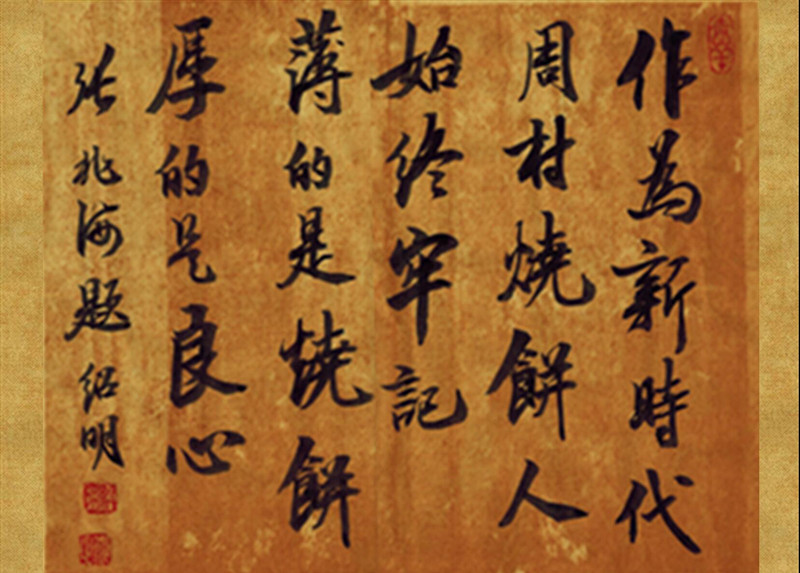 作為新時代
周村燒餅人
始终牢記
薄的是燒餅
厚的是良心
张兆海題 绍明